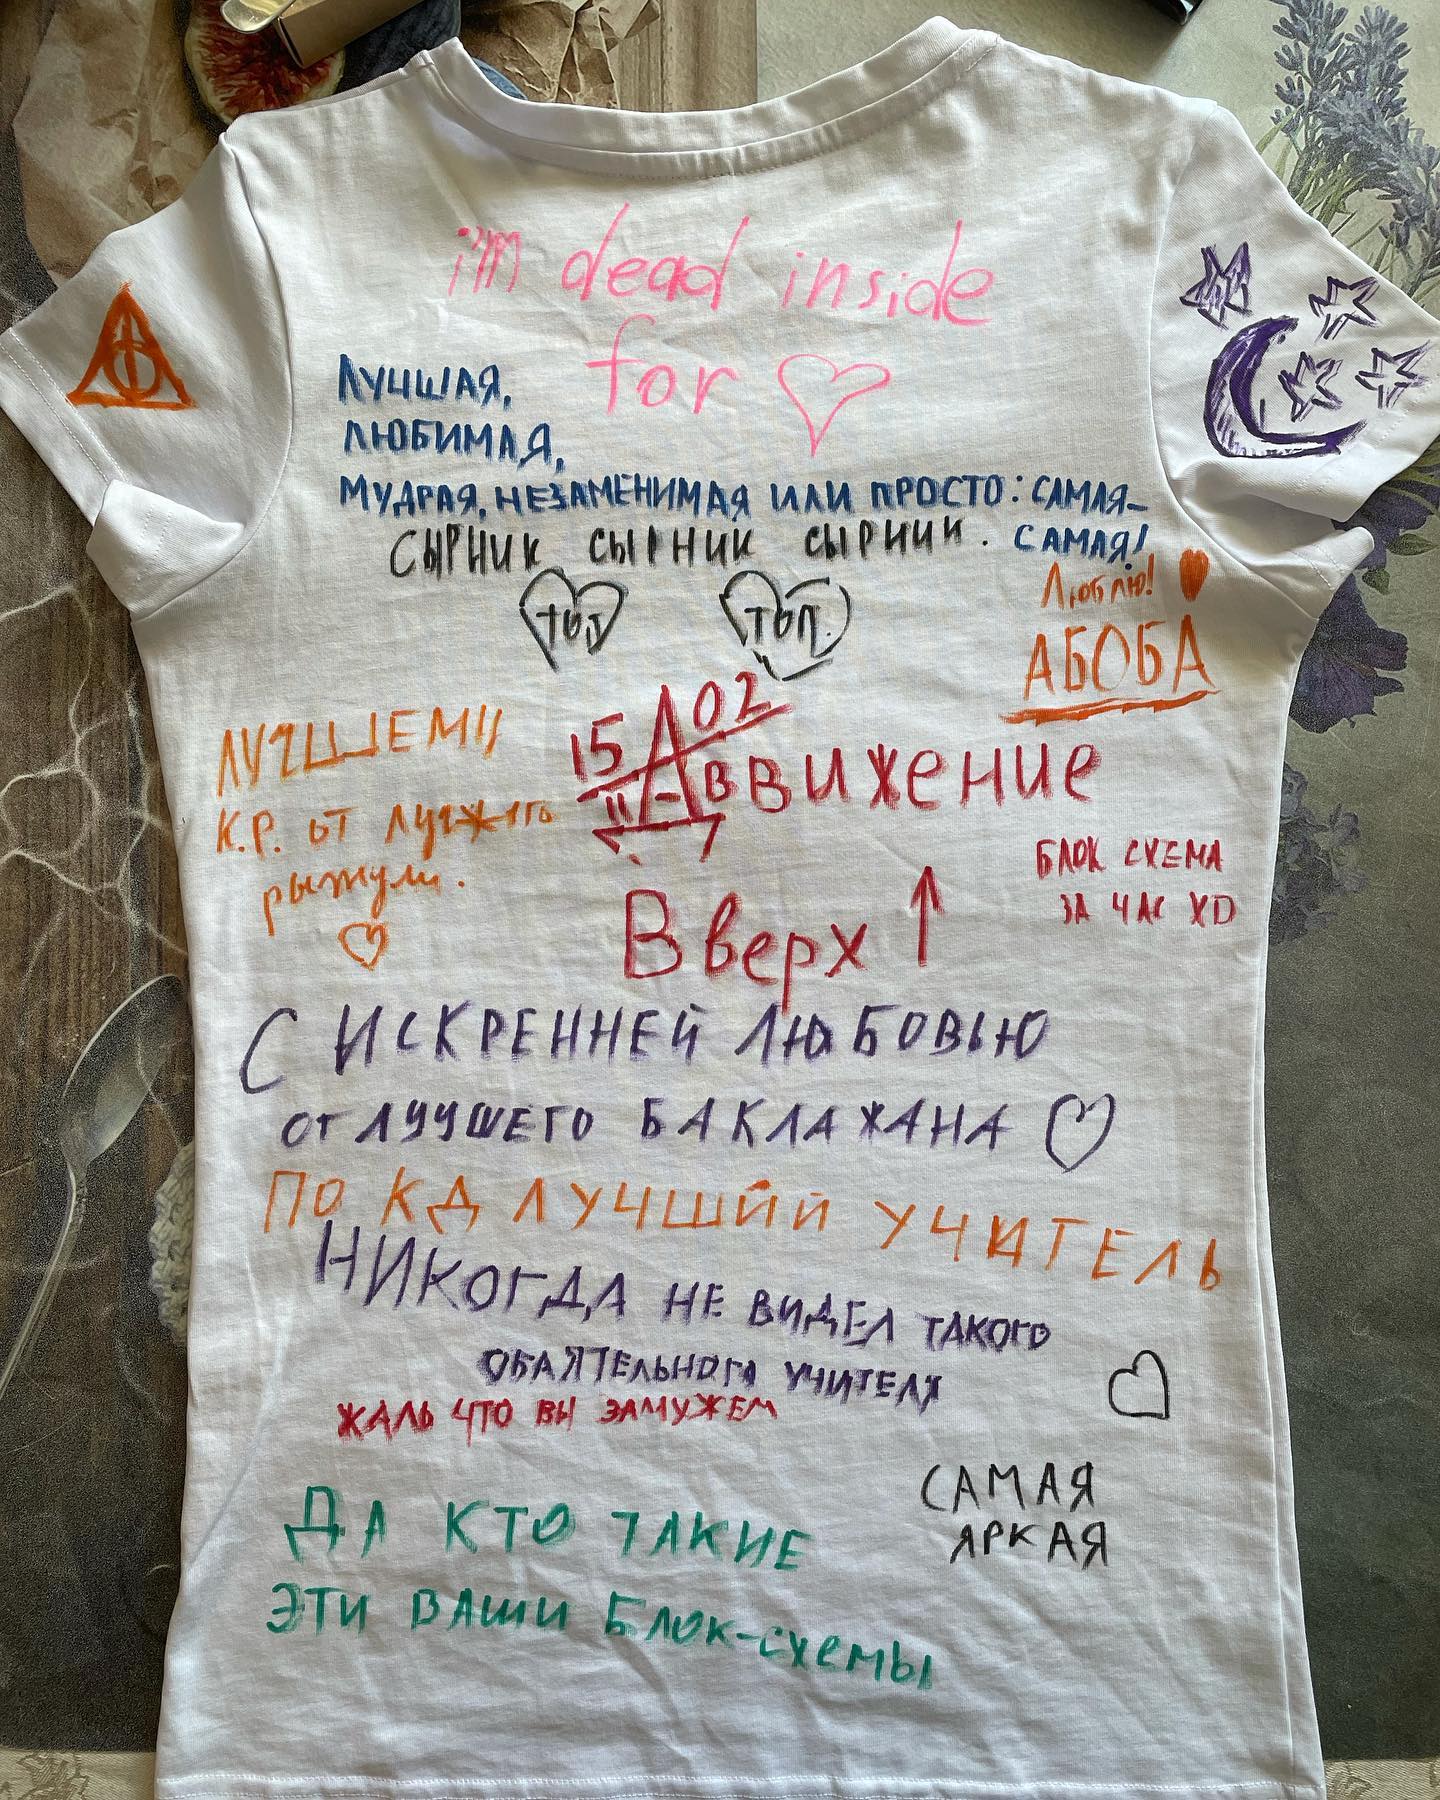 i'm dead inside
for
ЛУЧШАЯ,
ЛЮБИМАЯ,
МУДРАЯ, НЕЗАМЕНИМАЯ ИЛИ ПРОСТО: САМАЯ-
САМАЯ!
СЫРНИК СЫРНИК СЫРНИК.
ТОП.
Люблю!
АБОБА
ЛУЧШЕМУ
К.Р. от
рыжули.
15 02
Движение
Вверх ↑
БЛОК СХЕМА
ЗА ЧАС XD
С ИСКРЕННЕЙ ЛЮБОВЬЮ
от ЛУЧШЕГО БАКЛАЖАНА
ПО КД ЛУЧШИЙ УЧИТЕЛЬ
НИКОГДА НЕ ВИДЕЛ ТАКОГО
ОБАЯТЕЛЬНОГО УЧИТЕЛЯ
ЖАЛЬ ЧТО ВЫ ЗАМУЖЕМ
САМАЯ
ЯРКАЯ
ДА КТО ТАКИЕ
ЭТИ ВАШИ БЛОК-СХЕМЫ